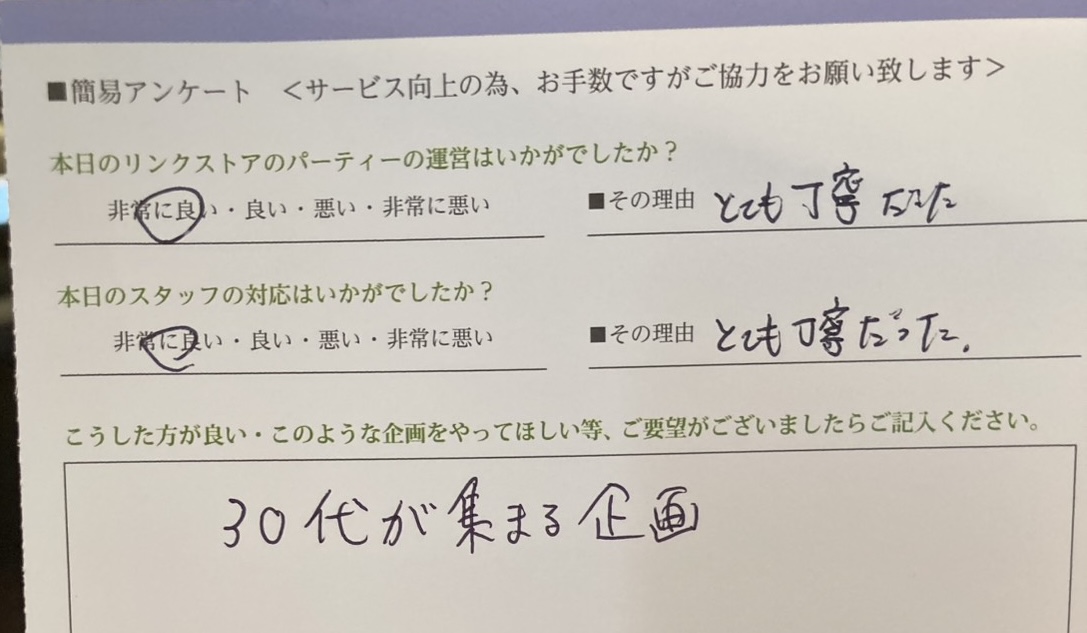 ■簡易アンケート ＜サービス向上の為、お手数ですがご協力をお願い致します＞
本日のリンクストアのパーティーの運営はいかがでしたか？
非常に良い・良い・悪い・非常に悪い ■その理由 とても丁寧だった
本日のスタッフの対応はいかがでしたか？
非常に良い・良い・悪い・非常に悪い ■その理由 とても丁寧だった。
こうした方が良い・このような企画をやってほしい等、ご要望がございましたらご記入ください。
30代が集まる企画